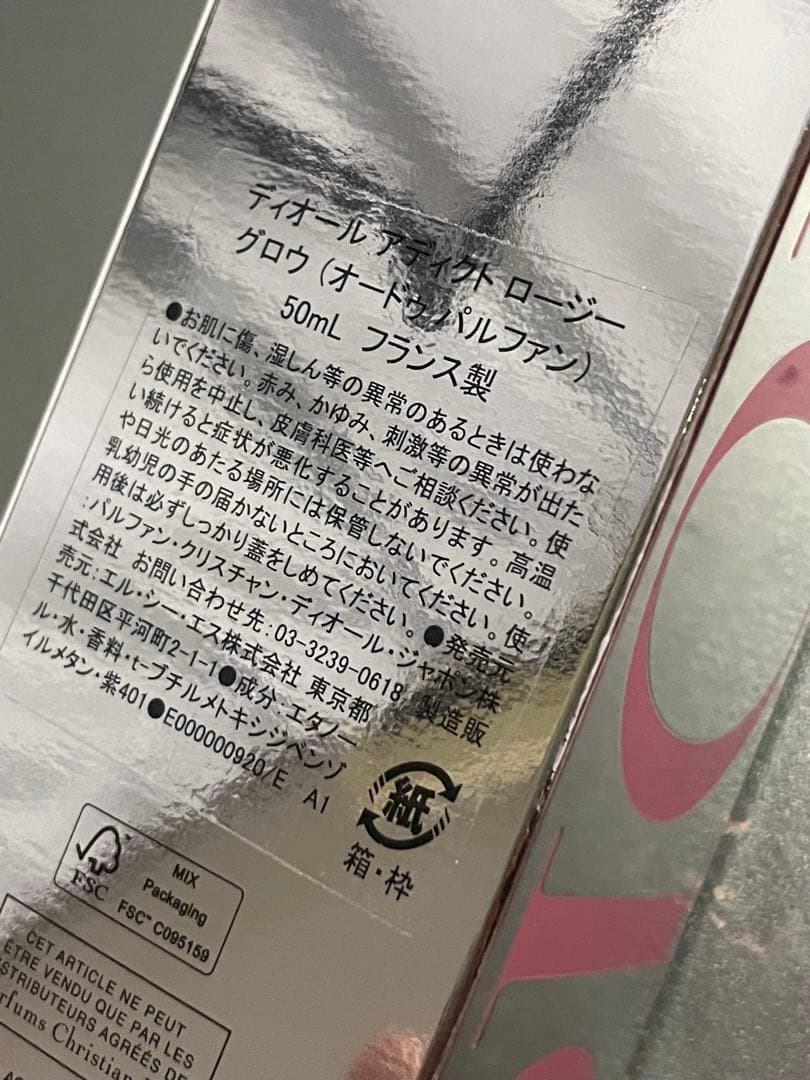 ディオール アディクト ロージー
グロウ (オードゥ パルファン)
50mL フランス製
●お肌に傷、湿しん等の異常のあるときは使わな
いでください。赤み、かゆみ、刺激等の異常が出た
ら使用を中止し、皮膚科医等へご相談ください。使
い続けると症状が悪化することがあります。高温
や日光のあたる場所には保管しないでください。
乳幼児の手の届かないところにおいてください。使
用後は必ずしっかり蓋をしめてください。●発売元
:パルファン・クリスチャン・ディオール・ジャポン株
式会社 お問い合わせ先:03-3239-0618 製造販
売元:エル・シー・エス株式会社 東京都
千代田区平河町2-1-1●成分:エタノー
ル・水・香料・t-ブチルメトキシジベンゾ
イルメタン・紫401●E000000920/E A1
紙
箱・枠
FSC
MIX
Packaging
FSC™ C095159
CET ARTICLE NE PEUT
ÊTRE VENDU QUE PAR LES
DISTRIBUTEURS AGRÉÉS DE
Parfums Christian